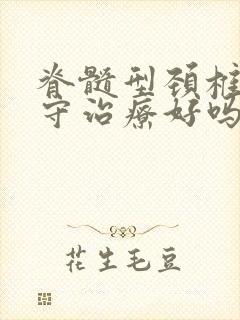 脊髓型颈椎
守治疗好吗
花生毛豆